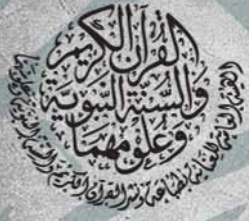 القرآن الكريم
والسنة النبوية
وعلومهما
الهيئة العامة للعناية بطباعة ونشر القرآن الكريم والسنة النبوية وعلومهما